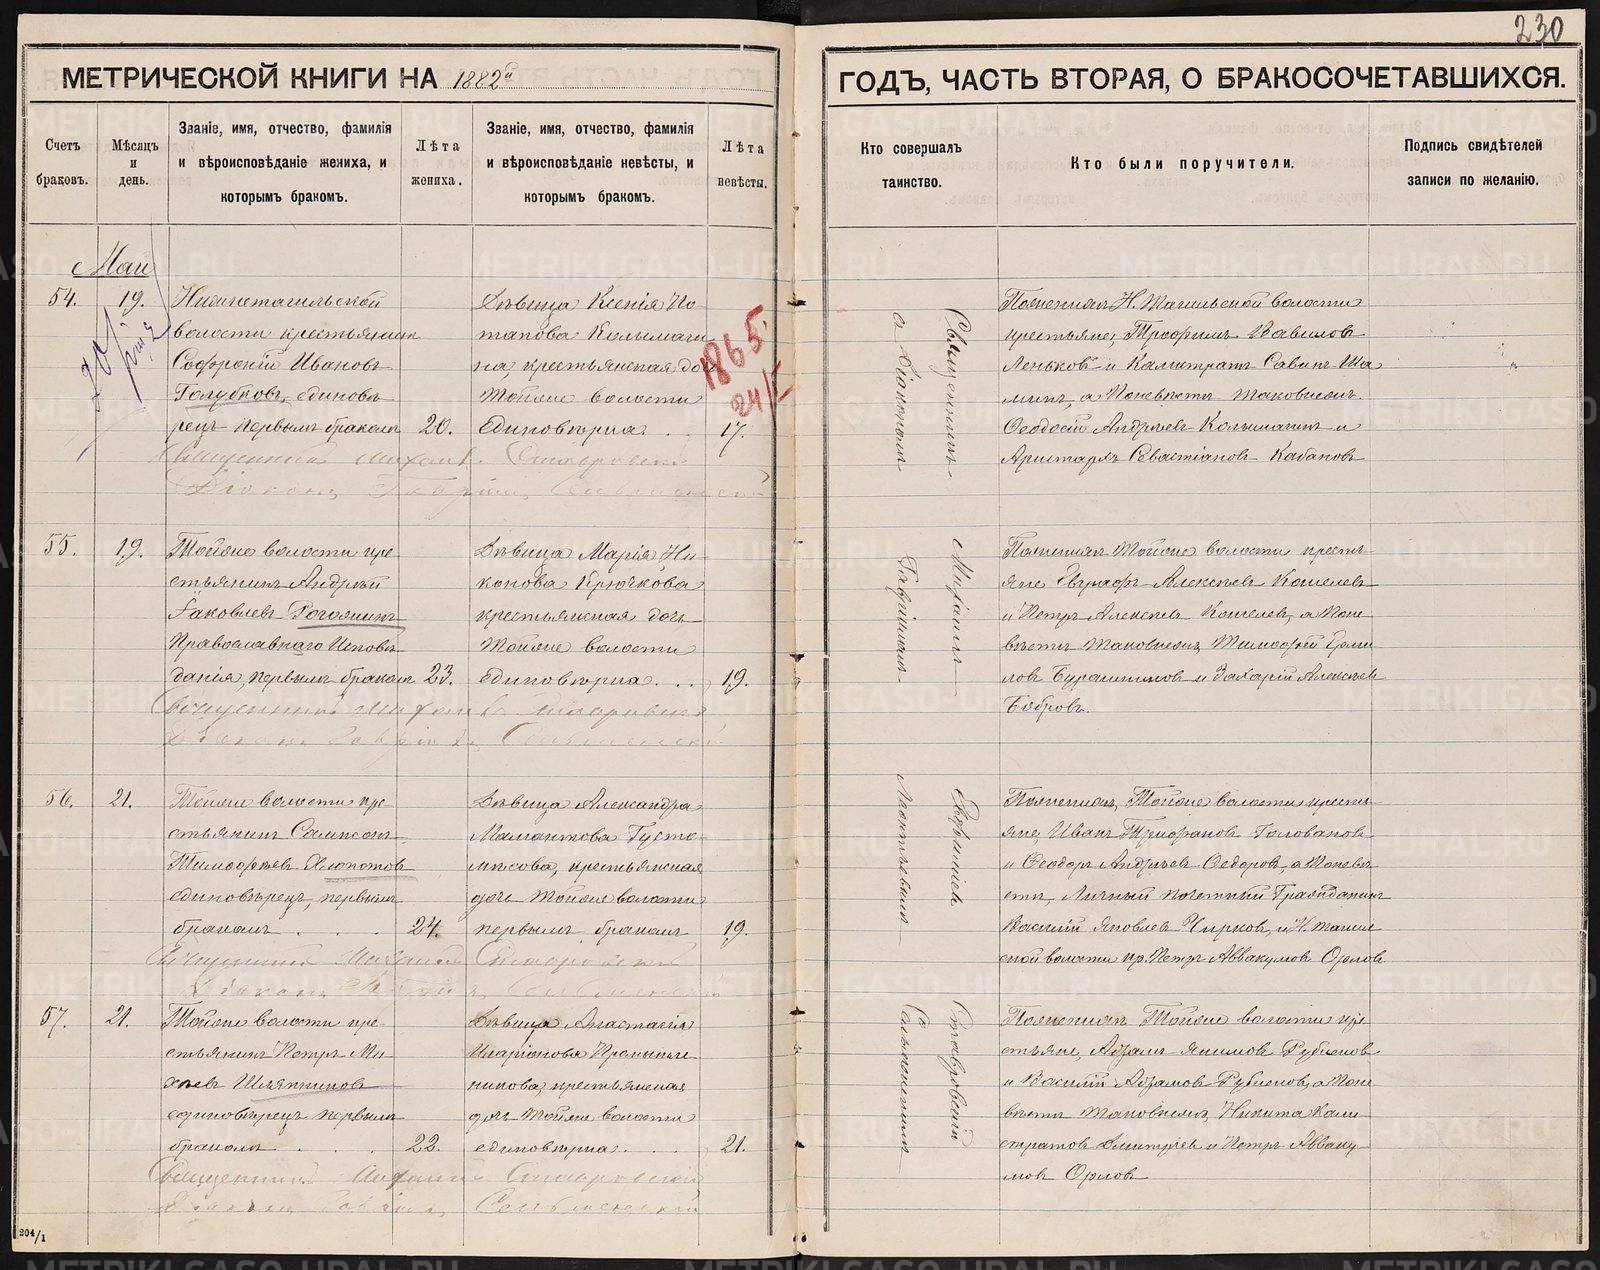 230
МЕТРИЧЕСКОЙ КНИГИ НА 1882й
ГОДЪ, ЧАСТЬ ВТОРАЯ, О БРАКОСОЧЕТАВШИХСЯ.
Счетъ браковъ.
Мѣсяцъ и день.
Званіе, имя, отчество, фамилія
и вѣроисповѣданіе жениха, и
которымъ бракомъ.
Лѣта жениха.
Званіе, имя, отчество, фамилія
и вѣроисповѣданіе невѣсты, и
которымъ бракомъ.
Лѣта невѣсты.
Кто совершалъ
таинство.
Кто были поручители.
Подпись свидѣтелей
записи по желанію.
Май
54.
19.
Нижнетагильской
волости крестьянинъ
Софроній Ивановъ
Голубковъ, единовѣ
рецъ первымъ бракомъ
20.
Дѣвица Ксенія По
тапова Колымаги
на крестьянская дочь
Тойже волости
Единовѣрка
17.
1865
24/
Священникъ Михаилъ Ставровскій
Діаконъ Гавріилъ
По женихѣ Н. Тагильской волости
крестьяне, Трофимъ Вавиловъ
Леньковъ и Калистратъ Савинъ Ша
минъ, а По невѣстѣ таковые же
Феодосій Андреевъ Колымагинъ и
Аристархъ Севастіановъ Кабановъ
55.
19.
Тойже волости кре
стьянинъ Андрей
Яковлевъ Рогожинъ
Православнаго Исповѣ
данія, первымъ бракомъ
23.
Дѣвица Марія Ни
конова Крючкова
крестьянская дочь
Тойже волости
единовѣрка
19.
Священникъ Михаилъ Ставровскій
Діаконъ Гавріилъ
По женихѣ Тойже волости кресть
яне Евграфъ Алексѣевъ Кошелевъ
и Петръ Алексѣевъ Кошелевъ, а По не
вѣстѣ таковые же, Тимофей
и Захарій Алексѣевъ
Бобровъ.
56.
21.
Тойже волости кре
стьянинъ Сампсонъ
Тимофеевъ Хлопотовъ
единовѣрецъ, первымъ
бракомъ
24.
Дѣвица Александра
Мамонтова Густо
мѣсова, крестьянская
дочь Тойже волости
первымъ бракомъ
19.
Священникъ Михаилъ Ставровскій
Діаконъ
По женихѣ, Тойже волости кресть
яне, Иванъ Трифоновъ Головановъ
и Феодоръ Андреевъ Федоровъ, а По невѣ
стѣ, Личный Почетный Гражданинъ
Василій Яковлевъ Чирковъ, и Н. Тагиль
ской волости кр. Петръ Аввакумовъ Орловъ
57.
21.
Тойже волости кре
стьянинъ Петръ Ми
хѣевъ Шляпниковъ
единовѣрецъ первымъ
бракомъ
22.
Дѣвица Анастасія
Иларіонова
крестьянская
дочь Тойже волости
единовѣрка
21.
Священникъ Михаилъ Ставровскій
Діаконъ Гавріилъ
По женихѣ Тойже волости кре
стьяне, Адамъ Якимовъ Рублевъ
и Василій
вѣстѣ таковые же, Никита Кали
стратовъ Дмитріевъ и Петръ Авваку
мовъ Орловъ
Священникъ Михаилъ Ставровскій
а Діаконъ Гавріилъ
204/1
METRIKI.GASO-URAL.RU